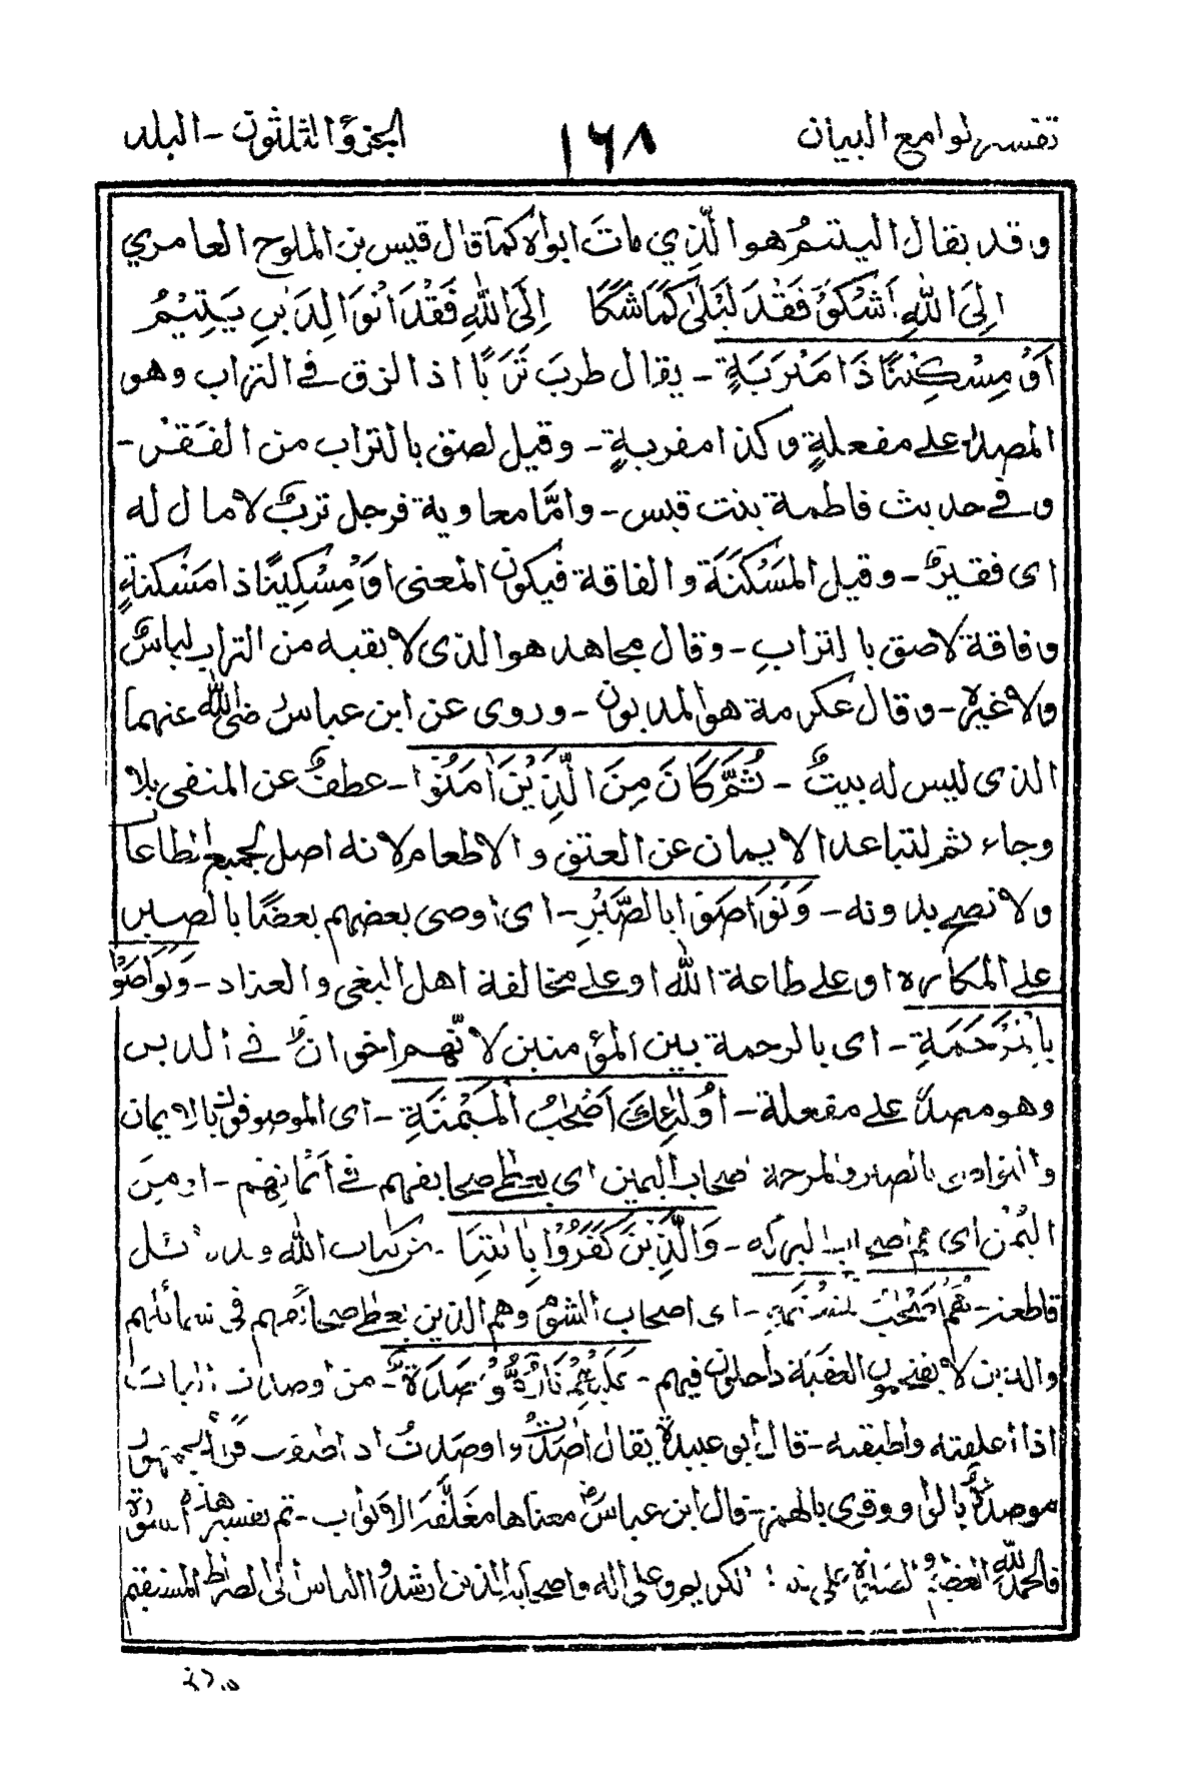 تفسير لوامع البيان ١٦٨ الجزؤ الثلثون - البلد
وقد يقال اليتيمُ هو الّذي مات ابواه كما قال قيس بن الملوح العامري
اِلَى اللهِ اَشْكُوْ فَقْدَ لَيْلٰى كَمَا شَكَا اِلَى اللهِ فَقْدَ الْوَالِدَيْنِ يَتِيْمُ
اَوْ مِسْكِيْنًا ذَا مَتْرَبَةٍ - يقال طربَ تَرَبًا اذا لزق في التراب وهو
المصدر على مفعلةٍ وكذا مقربةٍ - وقيل لصق بالتراب من الفَقْر -
وفي حديث فاطمة بنت قيس - وامّا معاوية فرجل تربٌ لا مال له
اى فقيرٌ - وقيل المَسْكَنَة والفاقة فيكون المعنى اَوْ مِسْكِيْنًا ذا مَسْكنةٍ
وفاقة لاصق بالترابِ - وقال مجاهد هو الذى لا يقيه من التراب لباسٌ
ولا غيره - وقال عكرمة هو المديون - وروى عن ابن عباس رضى الله عنهما
الذى ليس له بيتٌ - ثُمَّ كَانَ مِنَ الَّذِيْنَ اٰمَنُوْا - عطفٌ عن المنفى بلا
وجاء ثم لتباعد الايمان عن العتق والاطعام لانه اصل لجميع الطاعات
ولا تصح بدونه - وَتَوَاصَوْا بِالصَّبْرِ - اى اوصى بعضهم بعضًا بالصبر
على المكاره او على طاعة الله او على مخالفة اهل البغى والعناد - وَتَوَاصَوْا
بِالْمَرْحَمَةِ - اى بالرحمة بين المؤمنين لانّهم اخوانٌ في الدين
وهو مصدرٌ على مفعلة - اُولٰئِكَ اَصْحٰبُ الْمَيْمَنَةِ - اى الموصوفون بالايمان
والتواصى بالصبر والمرحمة اصحاب اليمين اى يعطى صحايفهم في اَيْمَانِهِمْ - او مِنَ
اليُمْن اى هم اصحاب البركه - وَالَّذِيْنَ كَفَرُوْا بِاٰيٰتِنَا - من كتاب الله ودلائل
قاطعة - هُمْ اَصْحٰبُ الْمَشْئَمَةِ - اى اصحاب الشؤم وهم الذين يعطى صحائفهم في شمائلهم
والذين لا يقتحمون العقبة داخلون فيهم - عَلَيْهِمْ نَارٌ مُّؤْصَدَةٌ - من اوصدت الباب
اذا اغلقته واطبقته - قال ابو عبيدة يقال اٰصدتُ واوصدتُ اذا اطبقت قرأ الجمهور
موصدةٌ بالواو وقرى بالهمزة - قال ابن عباسؓ معناها مغلّقة الابواب - تم تفسير هذه السورة
فالحمد لله والصلوة على واله واصحابه الذين ارشدوا الناس الى الصراط المستقيم